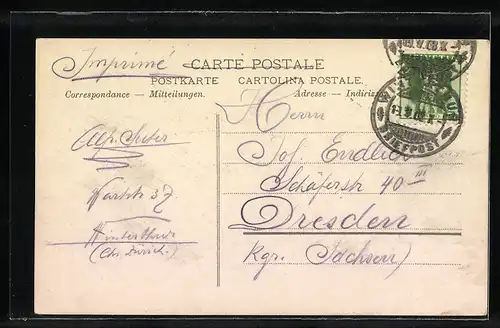 Imprimé CARTE POSTALE
POSTKARTE CARTOLINA POSTALE.
Correspondance — Mitteilungen. Adresse — Indirizz
Herrn
Jos. Endler
Schäferstr 40 III
Dresden
Kgr. Sachsen)
Alf. Suter
Wartstr. 37
Winterthur
(Ct. Zürich)
BRIEFPOST